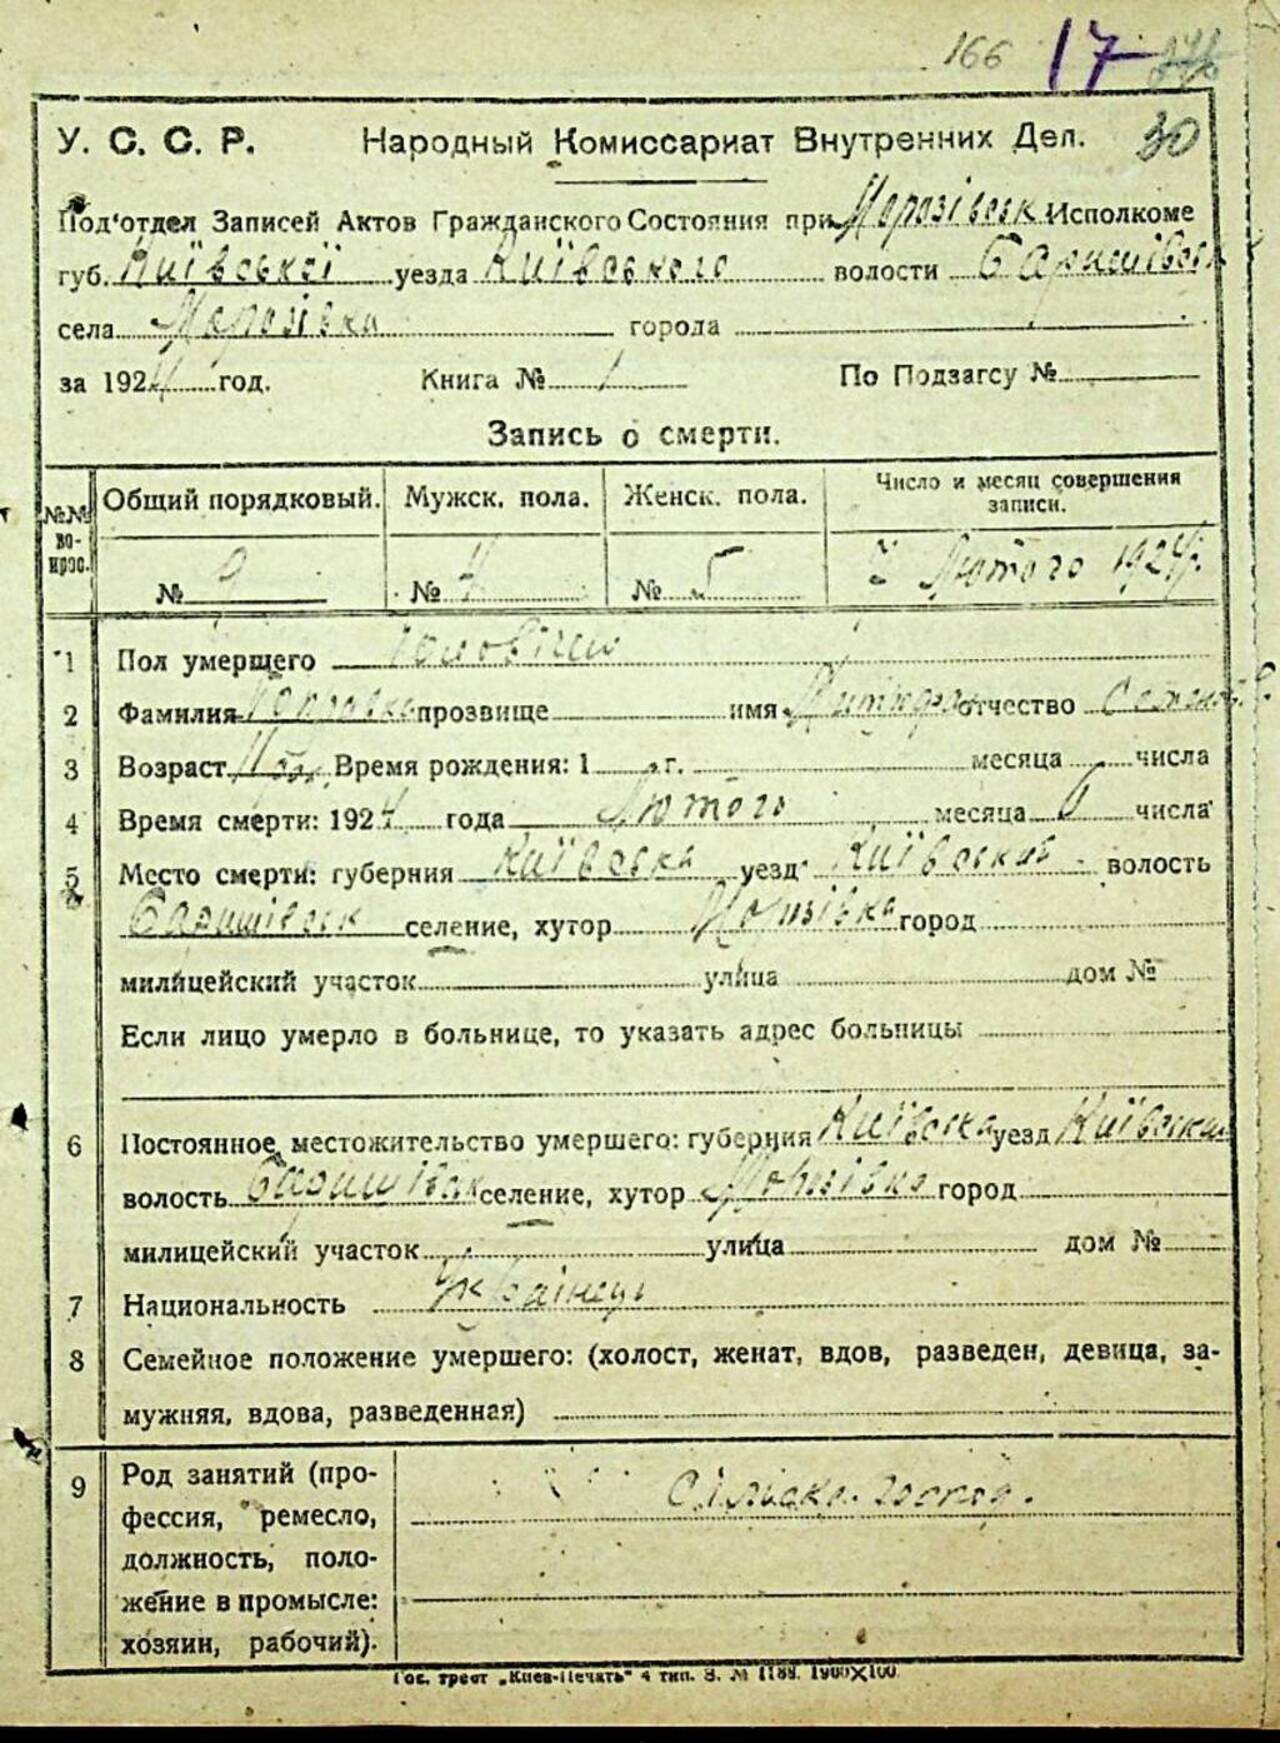 166 17
У. С. С. Р. Народный Комиссариат Внутренних Дел. 30
Под'отдел Записей Актов Гражданского Состояния при Морозівськ Исполкоме
губ. Київської уезда Київського волости Баришівськ
села Морозівка города
за 1924 год. Книга № 1 По Подзагсу №
Запись о смерти.
№№ вопрос. Общий порядковый. Мужск. пола. Женск. пола. Число и месяц совершения записи.
№ 9 № 4 № 5 Лютого 1924 р.
1 Пол умершего Чоловічий
2 Фамилия прозвище имя отчество
3 Возраст Время рождения: 1 г. месяца числа
4 Время смерти: 1924 года Лютого месяца 6 числа
5 Место смерти: губерния Київська уезд Київський волость
Баришівськ селение, хутор Морозівка город
милицейский участок улица дом №
Если лицо умерло в больнице, то указать адрес больницы
6 Постоянное местожительство умершего: губерния Київська уезд Київський
волость Баришівськ селение, хутор Морозівка город
милицейский участок улица дом №
7 Национальность Українець
8 Семейное положение умершего: (холост, женат, вдов, разведен, девица, за-
мужняя, вдова, разведенная)
9 Род занятий (про-
фессия, ремесло,
должность, поло-
жение в промысле:
хозяин, рабочий).
Сільськ. господ.
Гос. трест „Киев-Печать" 4 тип. З. № 1188. 1900×100